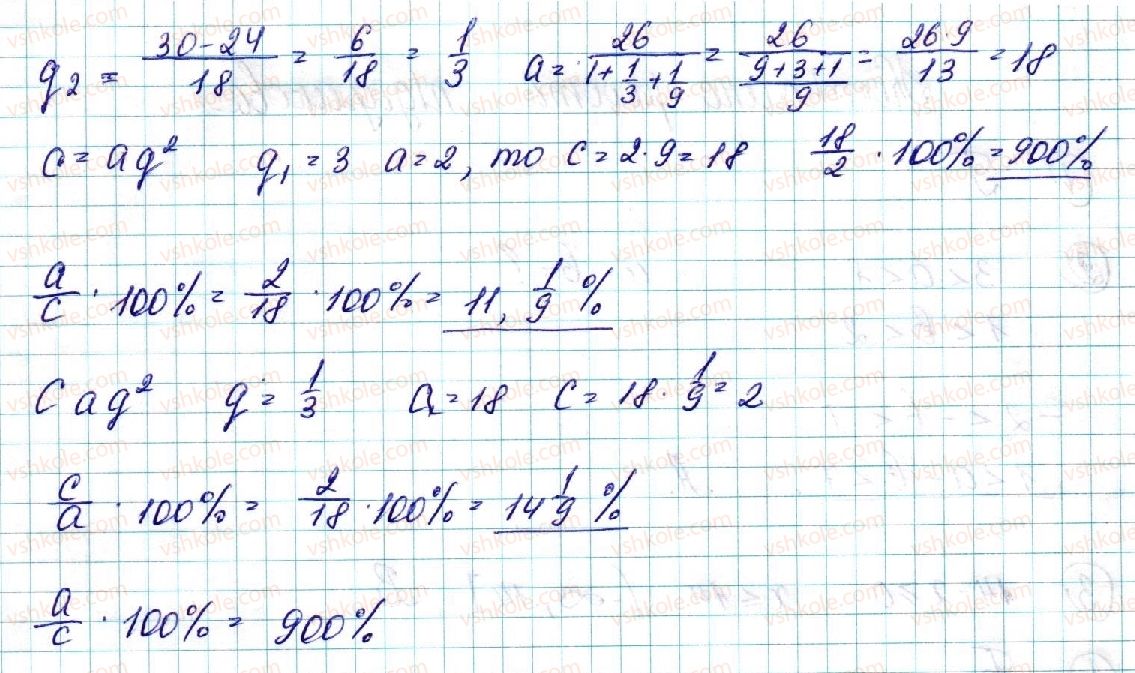 q₂ = (30-24)/18 = 6/18 = 1/3   a = 26/(1+1/3+1/9) = 26/((9+3+1)/9) = (26·9)/13 = 18
c = aq²   q₁ = 3   a = 2, то c = 2·9 = 18   18/2 · 100% = 900%
a/c · 100% = 2/18 · 100% = 11, 1/9 %
C aq²   q = 1/3   a = 18   c = 18 · 1/9 = 2
c/a · 100% = 2/18 · 100% = 14 1/9 %
a/c · 100% = 900%